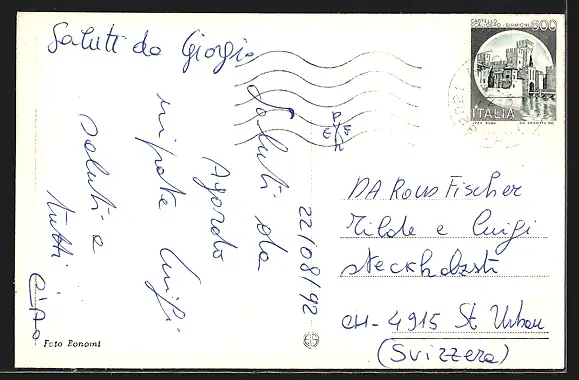 Saluti da Giorgio
Saluti da
Agordo
nipote Luigi
saluti a
tutti
ciao
22/08/92
Foto Bonomi
CASTELLO
SCALIGERO - SIRMIONE
500
ITALIA
DA Rous Fischer
Tilde e Luigi
CH-4915 St Urban
(Svizzera)